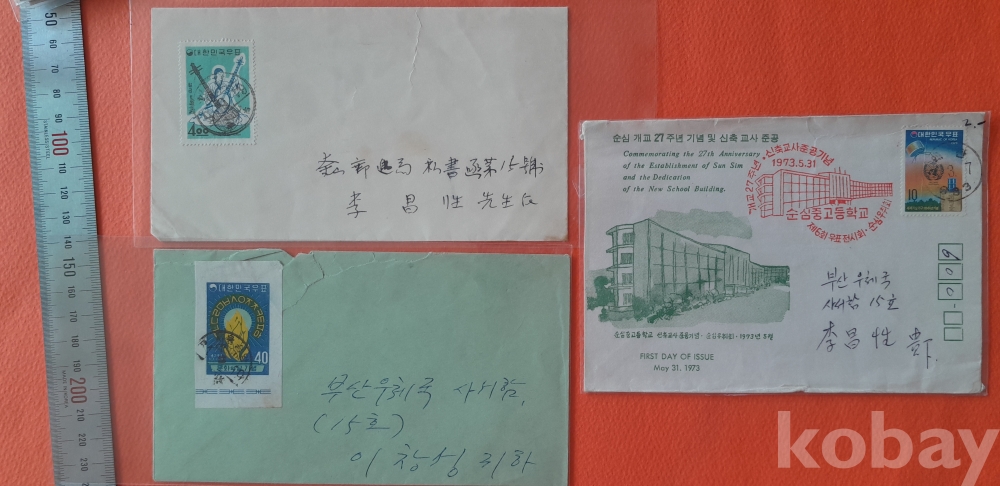 50
100
150
200
대한민국우표
4 00
釜山郵逓局 私書函第15號
李昌性 先生
대한민국우표
40
부산우체국 사서함
(15호)
이창성 귀하
순심 개교 27주년 기념 및 신축 교사 준공
Commemorating the 27th Anniversary
of the Establishment of Sun Sim
and the Dedication
of the New School Building.
개교27주년・신축교사준공기념
1973.5.31
순심중고등학교
제6회 우표전시회・순심우취회
대한민국우표
10
2.-
600-
부산우체국
사서함 15호
李昌性 貴下
순심중고등학교 신축교사 준공기념・순심우취회・1973년 5월
FIRST DAY OF ISSUE
May 31, 1973
kobay